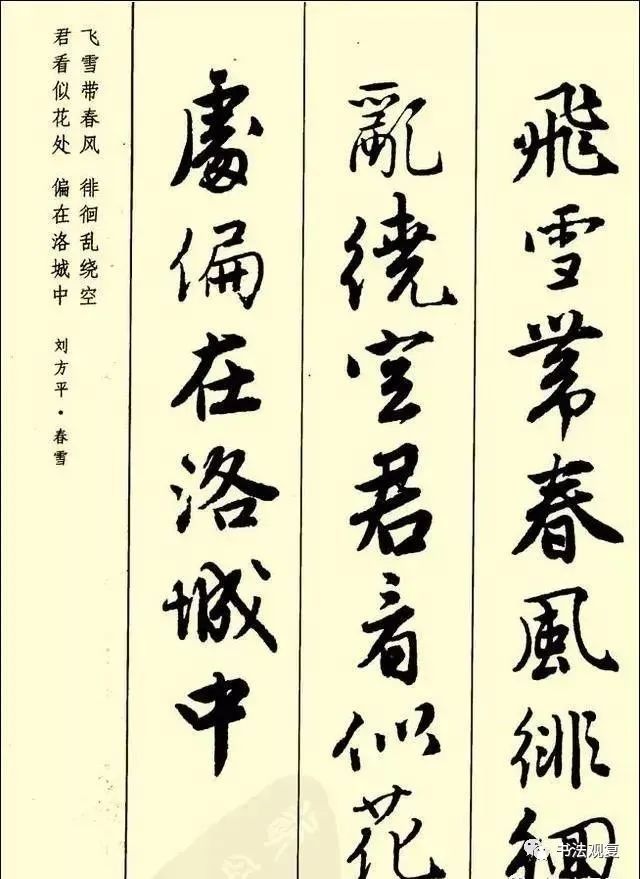 飛雪帶春風徘徊
亂繞空君看似花
處偏在洛城中
飞雪带春风 徘徊乱绕空
君看似花处 偏在洛城中
刘方平·春雪
书法观复